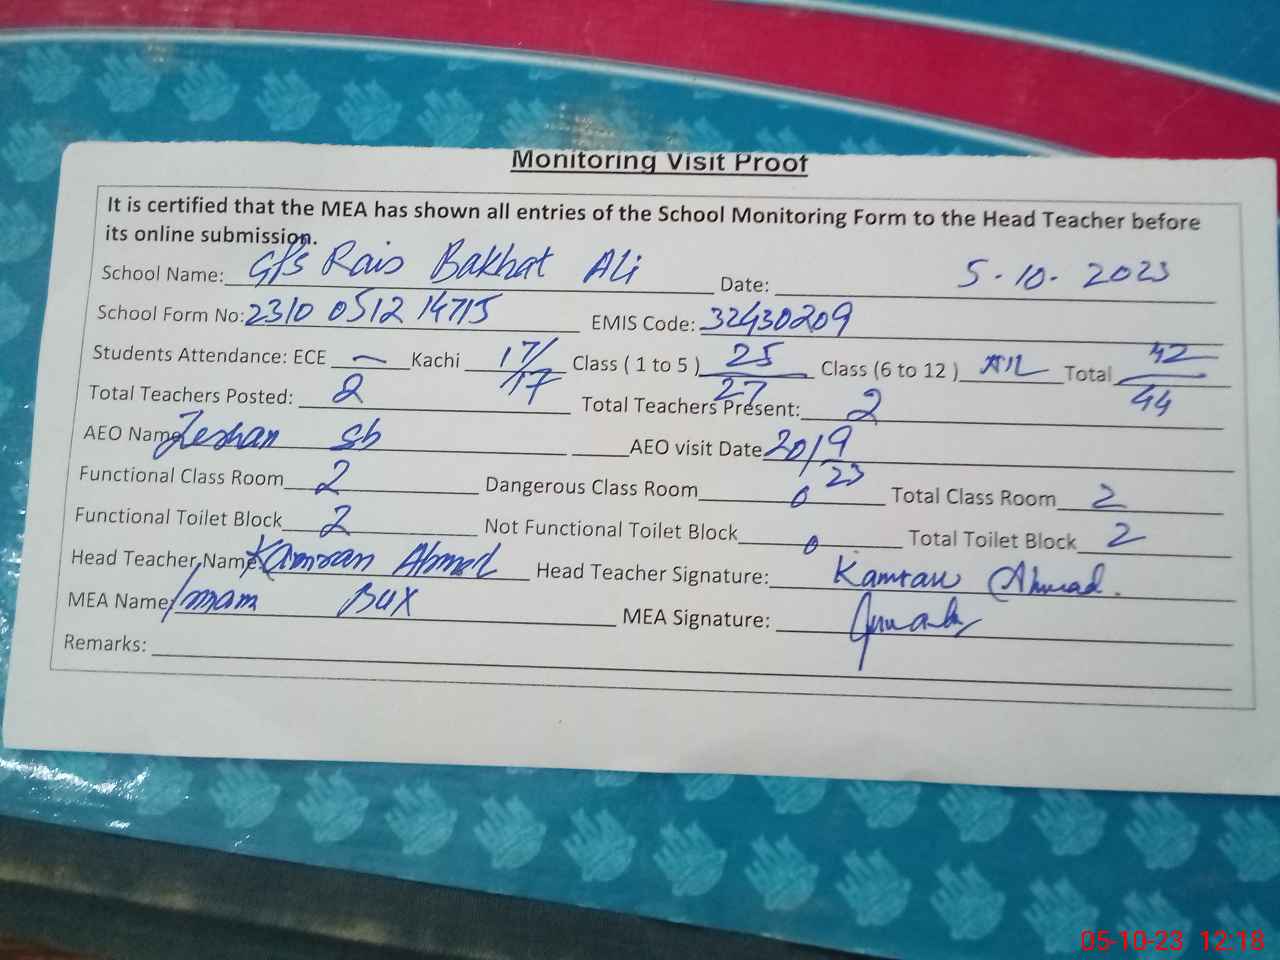 Monitoring Visit Proof
It is certified that the MEA has shown all entries of the School Monitoring Form to the Head Teacher before
its online submission.
School Name: G/P/S Rais Bakhat Ali Date: 5-10-2023
School Form No: 2310 0512 14715 EMIS Code: 32430209
Students Attendance: ECE — Kachi 17/17 Class ( 1 to 5 ) 25/27 Class (6 to 12 ) NIL Total 42/44
Total Teachers Posted: 2 Total Teachers Present: 2
AEO Name Zeshan Sb AEO visit Date 20/9/23
Functional Class Room 2 Dangerous Class Room 0 Total Class Room 2
Functional Toilet Block 2 Not Functional Toilet Block 0 Total Toilet Block 2
Head Teacher Name Kamran Ahmed Head Teacher Signature: Kamran Ahmad.
MEA Name Imam Bux MEA Signature:
Remarks:
05-10-23 12:18